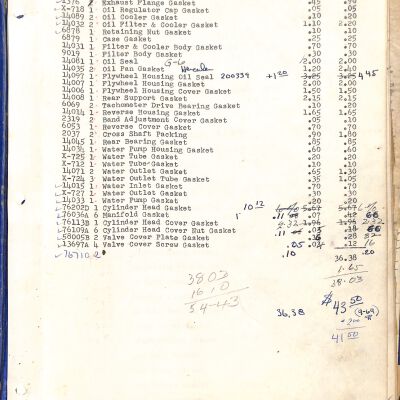 1376 2 Exhaust Flange Gasket .45 .90
X-718 1 Oil Regulator Cap Gasket .05 .05
14089 2 Oil Cooler Gasket .10 .20
14032 2 Oil Filter & Cooler Gasket 1.10 2.20
6878 1 Retaining Nut Gasket .10 .10
6879 1 Case Gasket .25 .25
14031 1 Filter & Cooler Body Gasket .70 .70
9019 1 Filter Body Gasket .30 .30
14081 1 Oil Seal G-6 2.00 2.00
14035 2 Oil Pan Gasket 1.20 2.40
14097 1 Flywheel Housing Oil Seal 200339 +1 20 3.25 3.25 4 45
14007 1 Flywheel Housing Gasket 2.00 2.00
14006 1 Flywheel Housing Cover Gasket 1.50 1.50
14008 1 Rear Support Gasket 2.15 2.15
6069 2 Tachometer Drive Bearing Gasket .10 .20
14014 1 Reverse Housing Gasket 1.65 1.65
2319 2 Band Adjustment Cover Gasket .05 .10
6053 1 Reverse Cover Gasket .70 .70
2037 2 Cross Shaft Packing .90 1.80
14045 1 Rear Bearing Gasket .85 .85
14034 1 Water Pump Housing Gasket .60 .60
X-725 1 Water Tube Gasket .20 .20
X-712 1 Water Tube Gasket .10 .10
14071 2 Water Outlet Gasket .65 1.30
X-724 3 Water Outlet Tube Gasket .35 1.05
14015 1 Water Inlet Gasket .70 .70
X-727 1 Water Outlet Gasket .30 .30
14033 1 Water Pump Gasket .20 .20
76202D 1 Cylinder Head Gasket 10 12
76036A 6 Manifold Gasket .11 .07 .42 66
76113B 1 Cylinder Head Cover Gasket 2.32
76109A 6 Cylinder Head Cover Nut Gasket .11 .03 .18 66
58005B 2 Valve Cover Plate Gasket .16 .28 32
13697A 4 Valve Cover Screw Gasket .05 .03 .12 16
76710 2 .10 .20
36.38
1.65
38.03
3803
1610
54-43
36,38
$43 50
(9-69)
- 2.00
41 50